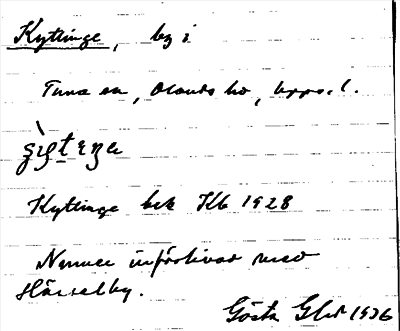 Kyttinge, by i
Tuna sn, Olands hd, Upps. l.
Kyttinge bek Kb 1928
Namnet införlivat med
Hässelby.
Gösta 1936